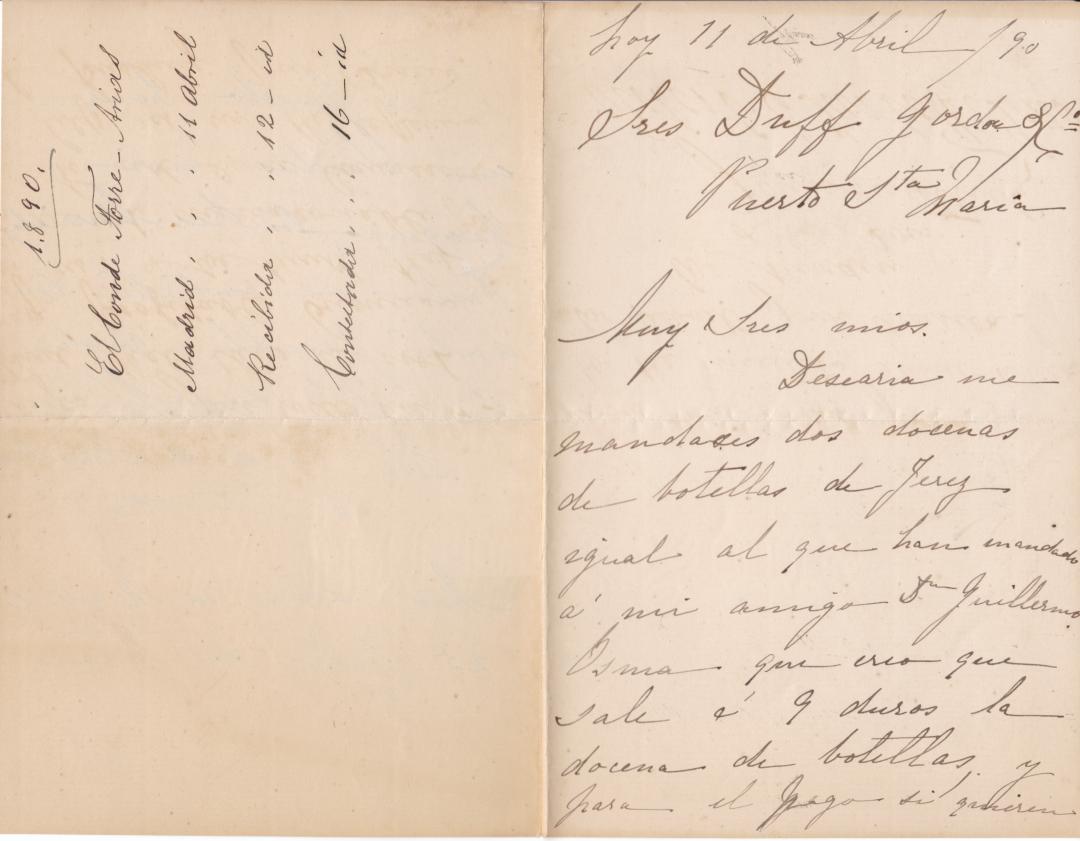 1.8.90.
El Conde Torre-Arias
Madrid, , 11 Abril
Recibida, , 12-id
Contestada, , 16-id
hoy 11 de Abril /90
Sres Duff Gordon & Cº
Puerto Sta Maria
Muy Sres mios.
Desearia me
mandases dos docenas
de botellas de Jerez
igual al que han mandado
á mi amigo Dn Guillermo
Osma que creo que
sale á 9 duros la
docena de botellas, y
para el pago si quieren